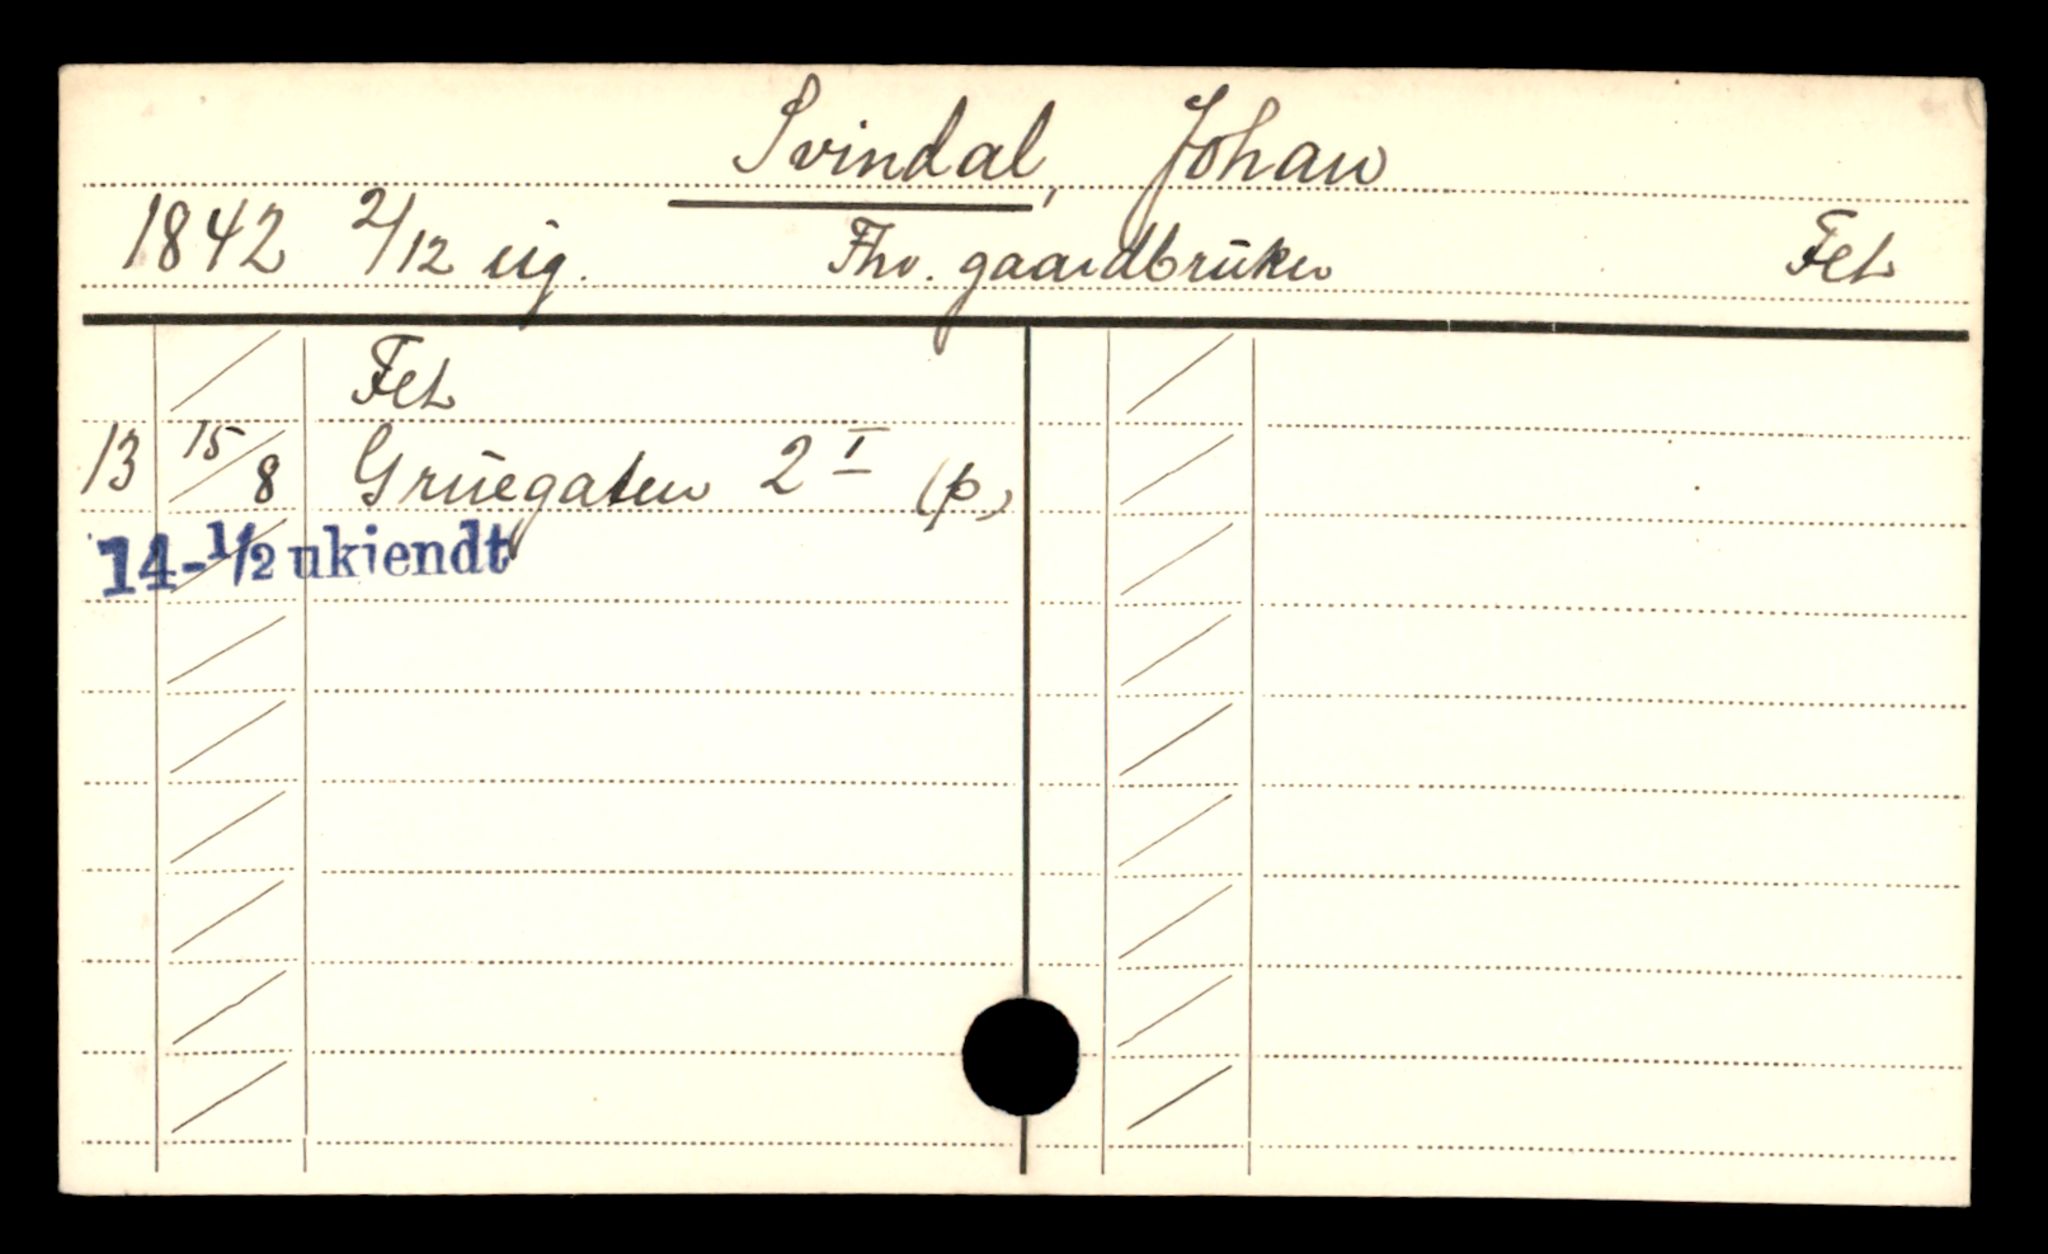 Svindal, Johan
1842 2/12 ug. Fhv. gaardbruker Fet
Fet
13 15/8 Gruegaten 2 I (p)
14-1/2 ukiendt